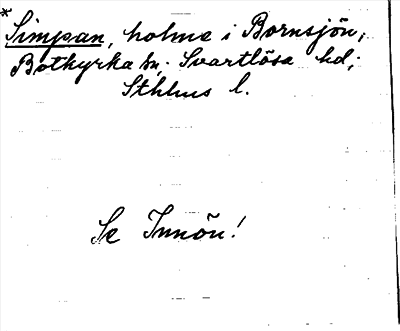 *Simpan, holme i Bornsjön,
Botkyrka sn. Svartlösa hd,
Sthlms l.
Se Innön!